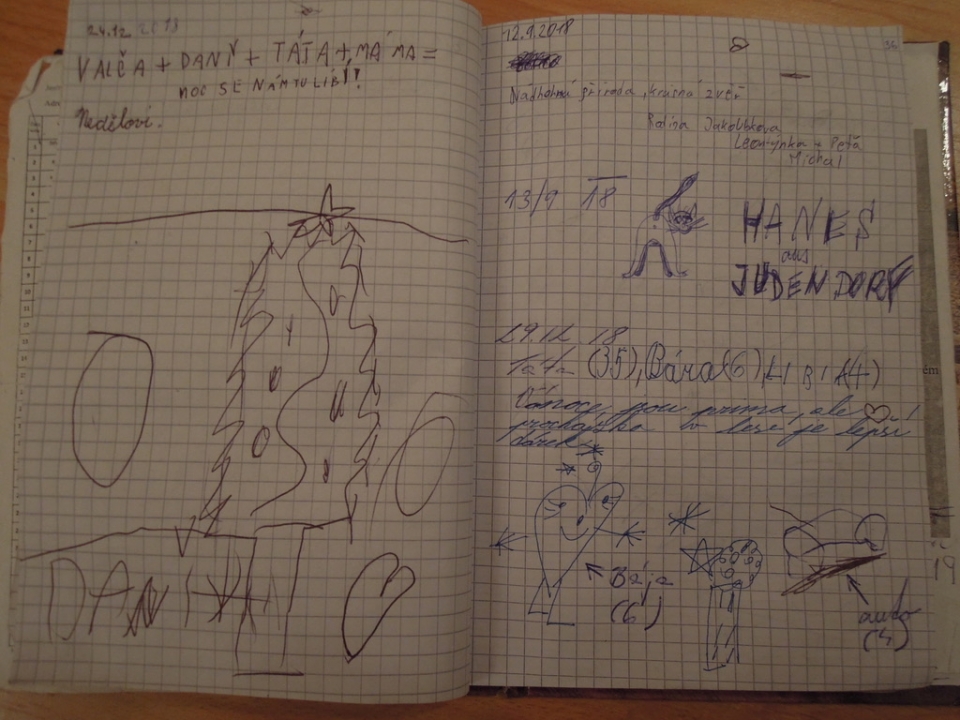 24.12 2018
VALČA + DANÝ + TÁŤA + MÁMA =
MOC SE NÁM TU LÍBÍ!
Nedělovi.
DAN
12.9.2018
Nádherná příroda, krásná zvěř
Jakoubkova
Leontýnka + Peťa
Michal
13/9 18
HANES
aus
JUDENDORF
29.12. 18
Táta (35), Bára (6), LIBI (4)
Vánoce jsou prima, ale
procházka v lese je lepší
dárek
Bája
(6)
auto
(4)
19
cm